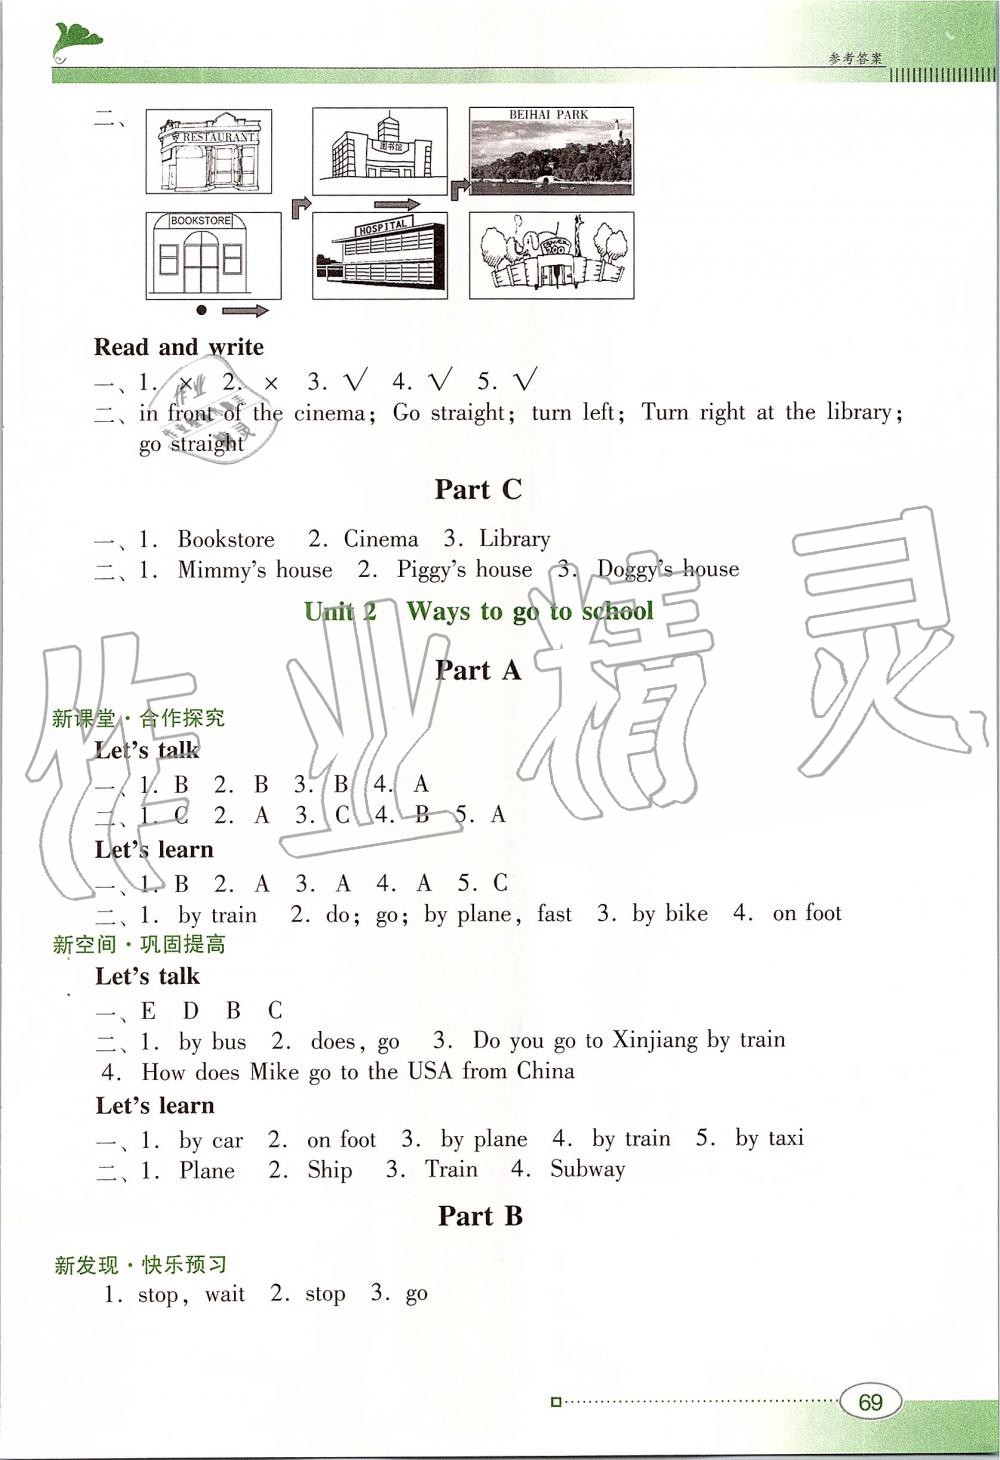 参考答案
二、
RESTAURANT
图书馆
BEIHAI PARK
BOOKSTORE
HOSPITAL
ZOO
Read and write
一、1. × 2. × 3. √ 4. √ 5. √
二、in front of the cinema; Go straight; turn left; Turn right at the library;
go straight
Part C
一、1. Bookstore 2. Cinema 3. Library
二、1. Mimmy's house 2. Piggy's house 3. Doggy's house
Unit 2 Ways to go to school
Part A
新课堂·合作探究
Let's talk
一、1. B 2. B 3. B 4. A
二、1. C 2. A 3. C 4. B 5. A
Let's learn
一、1. B 2. A 3. A 4. A 5. C
二、1. by train 2. do; go; by plane, fast 3. by bike 4. on foot
新空间·巩固提高
Let's talk
一、E D B C
二、1. by bus 2. does, go 3. Do you go to Xinjiang by train
4. How does Mike go to the USA from China
Let's learn
一、1. by car 2. on foot 3. by plane 4. by train 5. by taxi
二、1. Plane 2. Ship 3. Train 4. Subway
Part B
新发现·快乐预习
1. stop, wait 2. stop 3. go
69
作业精灵